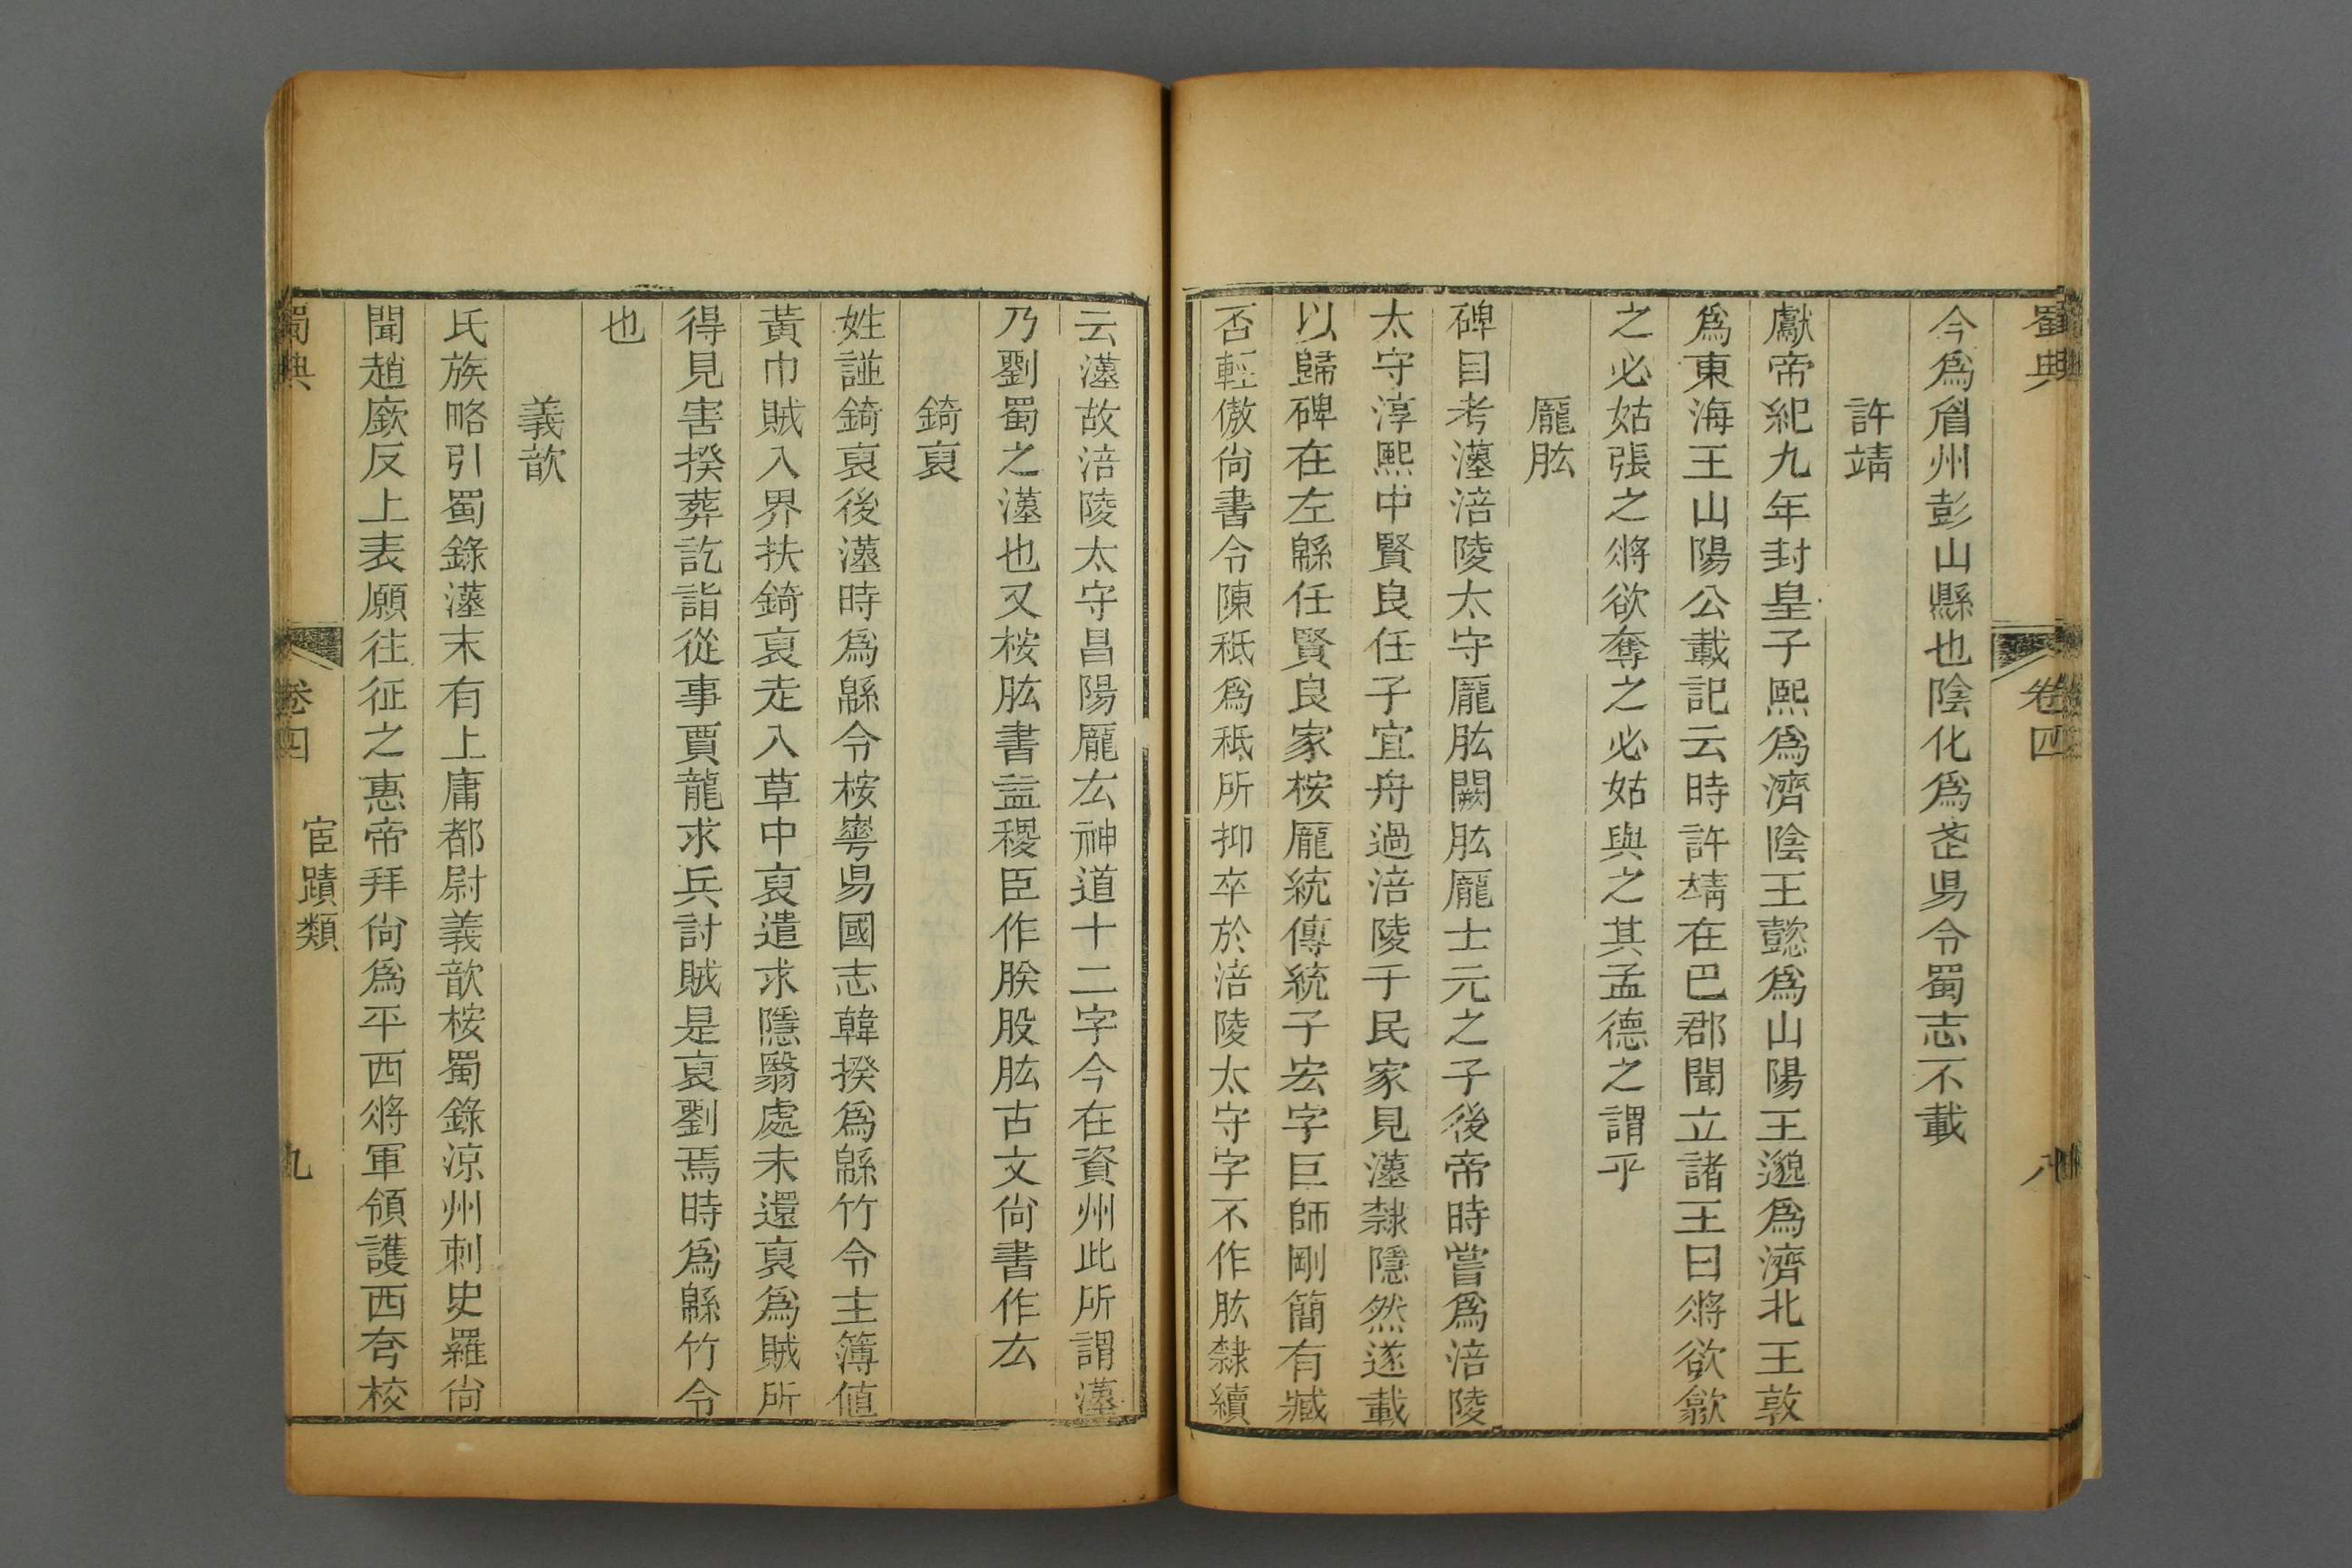 蜀典
卷四
八
今爲眉州彭山縣也陰化爲茋昜令蜀志不載
許靖
獻帝紀九年封皇子熙爲濟陰王懿爲山陽王邈爲濟北王敦
爲東海王山陽公載記云時許靖在巴郡聞立諸王曰將欲歙
之必姑張之將欲奪之必姑與之其孟德之謂乎
龐肱
碑目考漢涪陵太守龐肱闕肱龐士元之子後帝時嘗爲涪陵
太守淳熙中賢良任子宜舟過涪陵于民家見漢隸隱然遂載
以歸碑在左緜任賢良家桉龐統傳統子宏字巨師剛簡有臧
否輕傲尙書令陳袛爲袛所抑卒於涪陵太守字不作肱隸續
云漢故涪陵太守昌陽龐厷神道十二字今在資州此所謂漢
乃劉蜀之漢也又桉肱書益稷臣作朕股肱古文尙書作厷
錡裒
姓諩錡裒後漢時爲緜令桉華昜國志韓揆爲緜竹令主簿値
黃巾賊入界扶錡裒走入草中裒遣求隱翳處未還裒爲賊所
得見害揆葬訖詣從事賈龍求兵討賊是裒劉焉時爲緜竹令
也
義歆
氏族略引蜀錄漢末有上庸都尉義歆桉蜀錄涼州刺史羅尙
聞趙廞反上表願往征之惠帝拜尙爲平西將軍領護西夸校
蜀典
卷四
宦蹟類
九